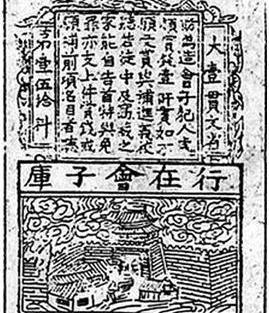 大壹貫文省
造會子犯人
賞錢壹阡貫如不
願支賞與補進義
徒中及之
家能自告首特與免
罪亦支上件賞錢或
願補前項名目者
第壹伍拾
行在會子庫